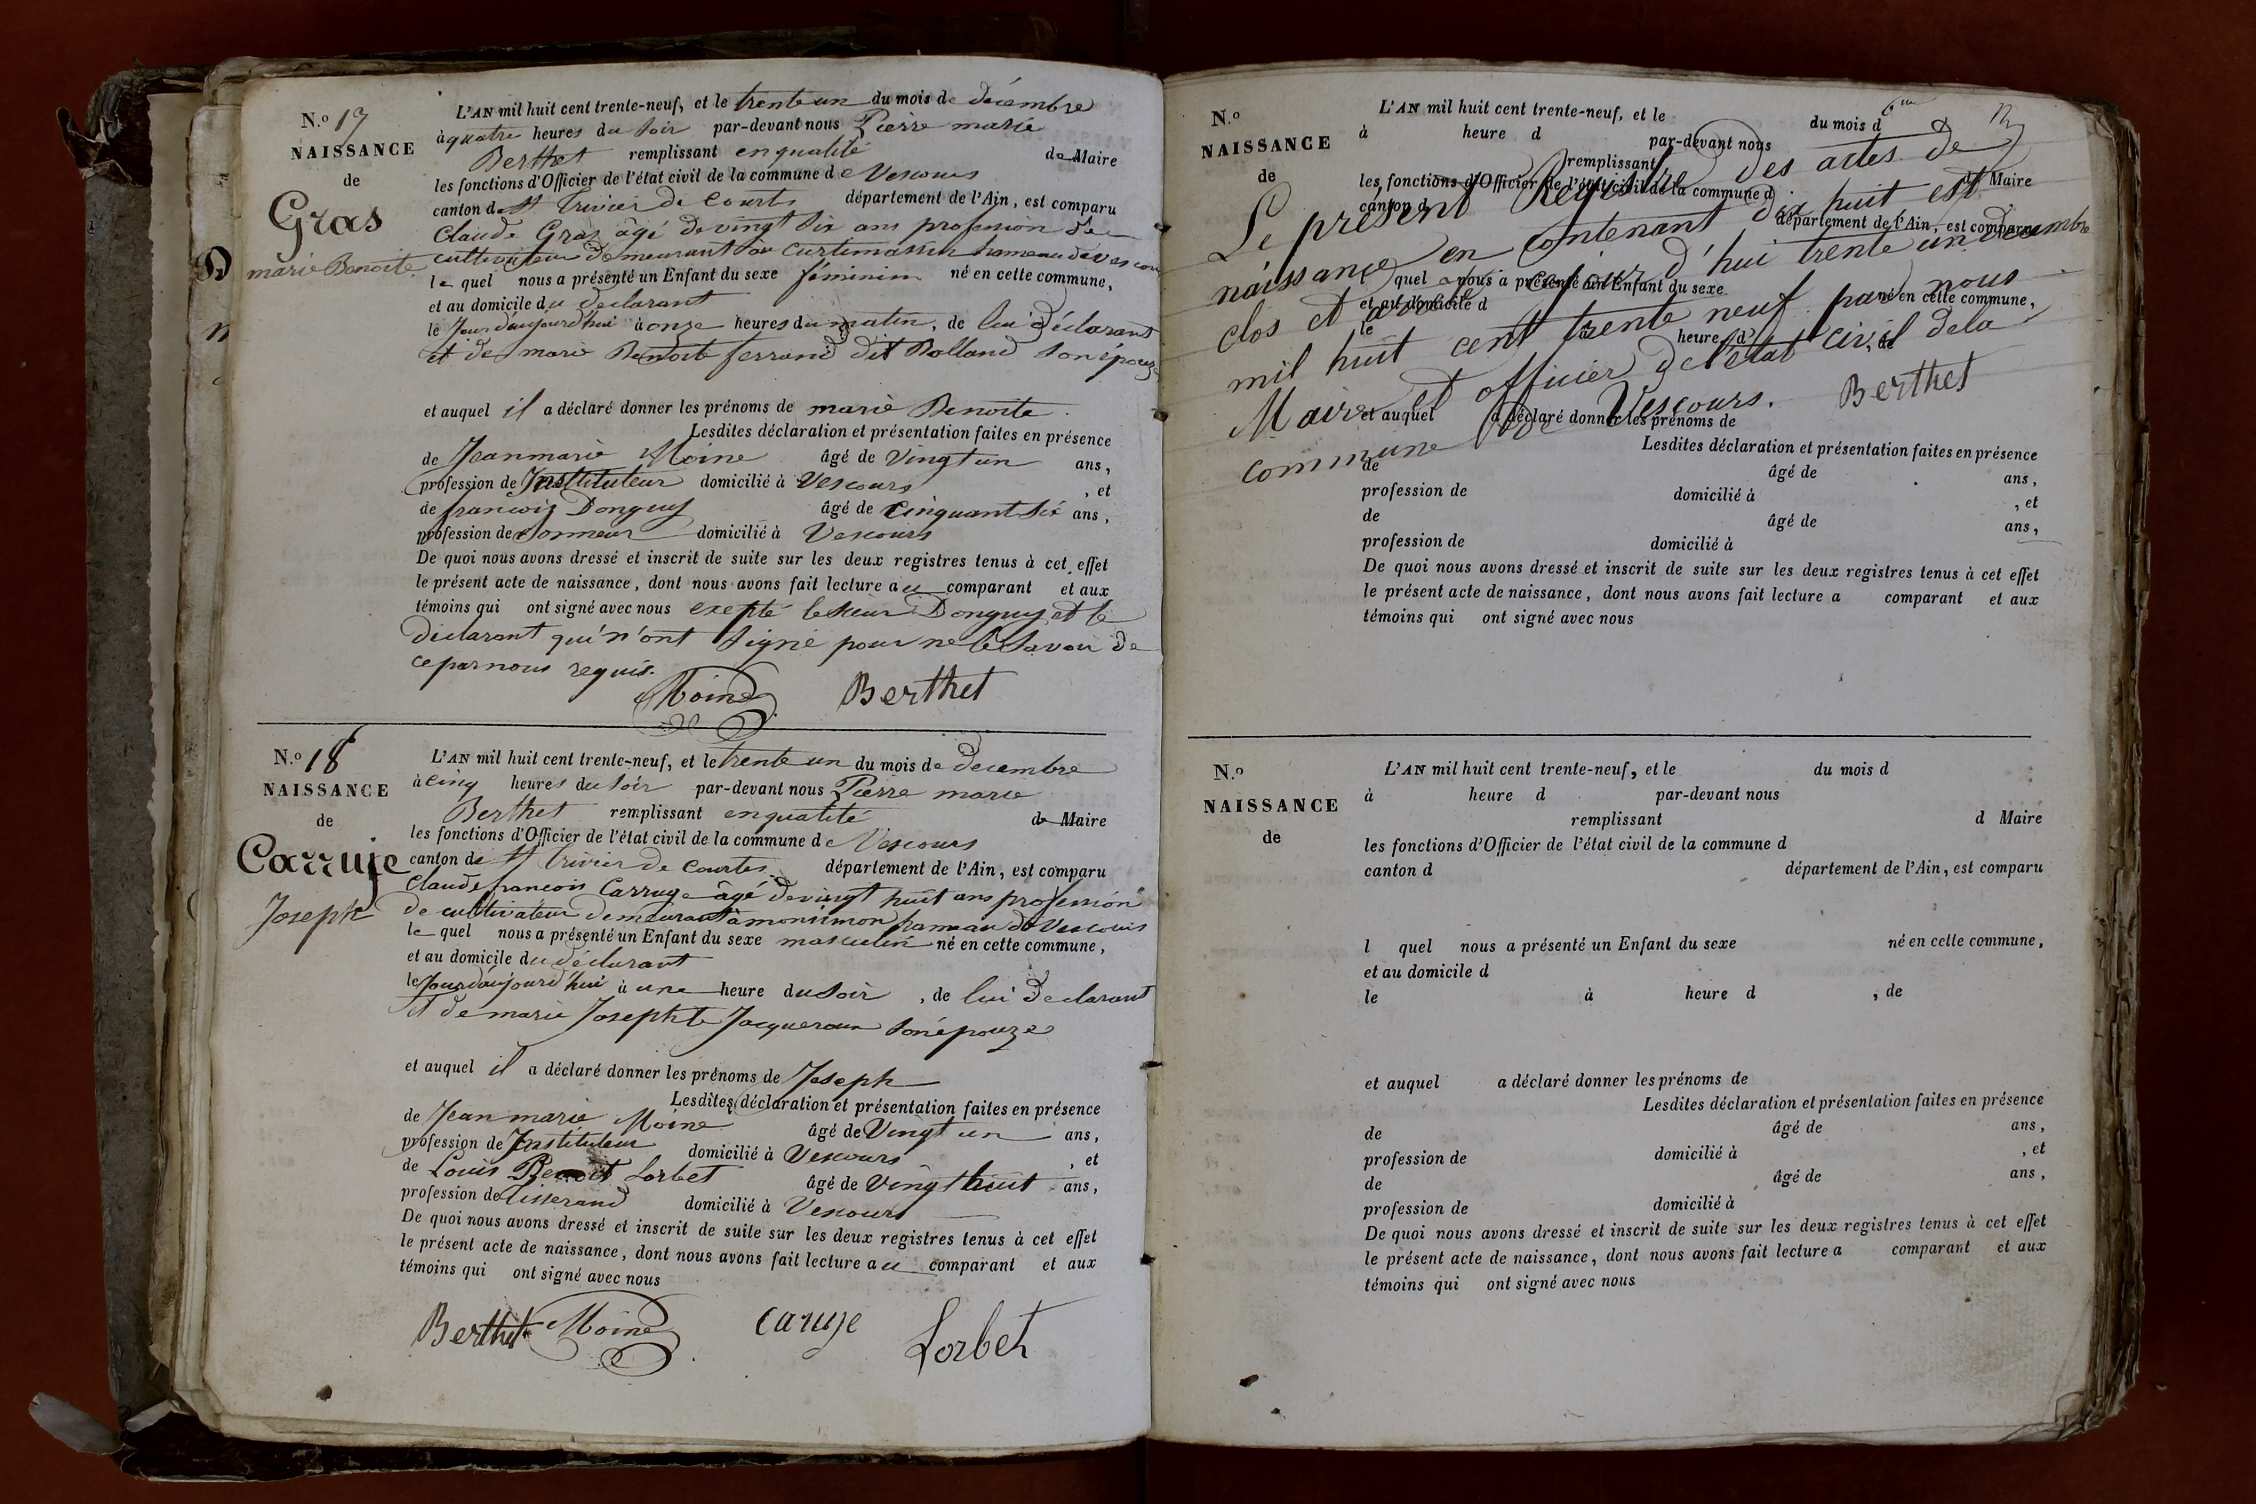 N.º 17
NAISSANCE
de
Gras
marie Benoite
L'AN mil huit cent trente-neuf, et le trente un du mois de décembre
à quatre heures du soir par-devant nous Pierre marie
Berthet remplissant en qualité de Maire
les fonctions d'Officier de l'état civil de la commune de Vescours
canton de St Trivier de Courtes département de l'Ain, est comparu
Claude Gras âgé de vingt six ans profession de
cultivateur demeurant à Curtimassin hameau de Vescours
le quel nous a présenté un Enfant du sexe féminin né en cette commune,
et au domicile du declarant
le Jour d'aujourd'hui à onze heures du matin, de lui déclarant
et de marie Benoite ferrand dit Rolland son épouze
et auquel il a déclaré donner les prénoms de marie Benoite.
Lesdites déclaration et présentation faites en présence
de Jean marie Moine âgé de Vingt un ans,
profession de Instituteur domicilié à Vescours, et
de francois Donguy âgé de Cinquant six ans,
profession de Sonneur domicilié à Vescours
De quoi nous avons dressé et inscrit de suite sur les deux registres tenus à cet effet
le présent acte de naissance, dont nous avons fait lecture au comparant et aux
témoins qui ont signé avec nous exepté le sieur Donguy et le
déclarant qui n'ont signé pour ne le savoir de
ce par nous requis.
Moine Berthet
N.º 18
NAISSANCE
de
Carruje
Joseph
L'AN mil huit cent trente-neuf, et le trente un du mois de decembre
à cinq heures du soir par-devant nous Pierre marie
Berthet remplissant en qualité de Maire
les fonctions d'Officier de l'état civil de la commune de Vescours
canton de St Trivier de Courtes département de l'Ain, est comparu
Claude francois Carruge âgé de vingt huit ans profession
de cultivateur demeurant à monsimon hameau de Vescours
le quel nous a présenté un Enfant du sexe masculin né en cette commune,
et au domicile du déclarant
le Jour d'aujourd'hui à une heure du soir, de lui declarant
et de marie Josephte Jacqueroux son épouze
et auquel il a déclaré donner les prénoms de Joseph
Lesdites déclaration et présentation faites en présence
de Jean marie Moine âgé de Vingt un ans,
profession de Instituteur domicilié à Vescours, et
de Louis Benoit Lorbet âgé de Vingt huit ans,
profession de Tisserand domicilié à Vescours
De quoi nous avons dressé et inscrit de suite sur les deux registres tenus à cet effet
le présent acte de naissance, dont nous avons fait lecture au comparant et aux
témoins qui ont signé avec nous
Berthet Moine caruje Lorbet
N.º
NAISSANCE
de
L'AN mil huit cent trente-neuf, et le du mois d
à heure d par-devant nous
remplissant d Maire
les fonctions d'Officier de l'état civil de la commune d
canton d département de l'Ain, est comparu
Le présent Registre des actes de
naissance en contenant dix huit est
clos et arrêté ce jour d'hui trente un decembre
mil huit cent trente neuf par nous
Maire et officier de l'état civil de la
commune de Vescours. Berthet
l quel nous a présenté un Enfant du sexe né en cette commune,
et au domicile d
le à heure d, de
et auquel a déclaré donner les prénoms de
Lesdites déclaration et présentation faites en présence
de âgé de ans,
profession de domicilié à, et
de âgé de ans,
profession de domicilié à
De quoi nous avons dressé et inscrit de suite sur les deux registres tenus à cet effet
le présent acte de naissance, dont nous avons fait lecture a comparant et aux
témoins qui ont signé avec nous
N.º
NAISSANCE
de
L'AN mil huit cent trente-neuf, et le du mois d
à heure d par-devant nous
remplissant d Maire
les fonctions d'Officier de l'état civil de la commune d
canton d département de l'Ain, est comparu
l quel nous a présenté un Enfant du sexe né en cette commune,
et au domicile d
le à heure d, de
et auquel a déclaré donner les prénoms de
Lesdites déclaration et présentation faites en présence
de âgé de ans,
profession de domicilié à, et
de âgé de ans,
profession de domicilié à
De quoi nous avons dressé et inscrit de suite sur les deux registres tenus à cet effet
le présent acte de naissance, dont nous avons fait lecture a comparant et aux
témoins qui ont signé avec nous